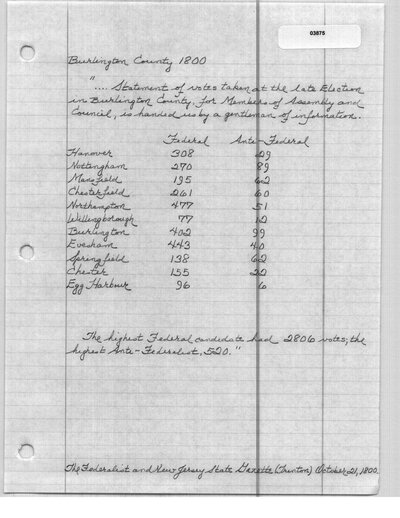 03875
Burlington County 1800
".... Statement of votes taken at the late Election
in Burlington County, for Members of Assembly and
Council, is handed us by a gentleman of information.
Federal Anti-Federal
Hanover 308 29
Nottingham 270 89
Mansfield 195 62
Chesterfield 261 60
Northampton 477 51
Willingborough 77 12
Burlington 402 99
Evesham 443 40
Springfield 138 62
Chester 155 22
Egg Harbour 96 6
The highest Federal candidate had 2806 votes; the
highest Anti-Federalist, 520."
The Federalist and New Jersey State Gazette (Trenton) October 21, 1800.